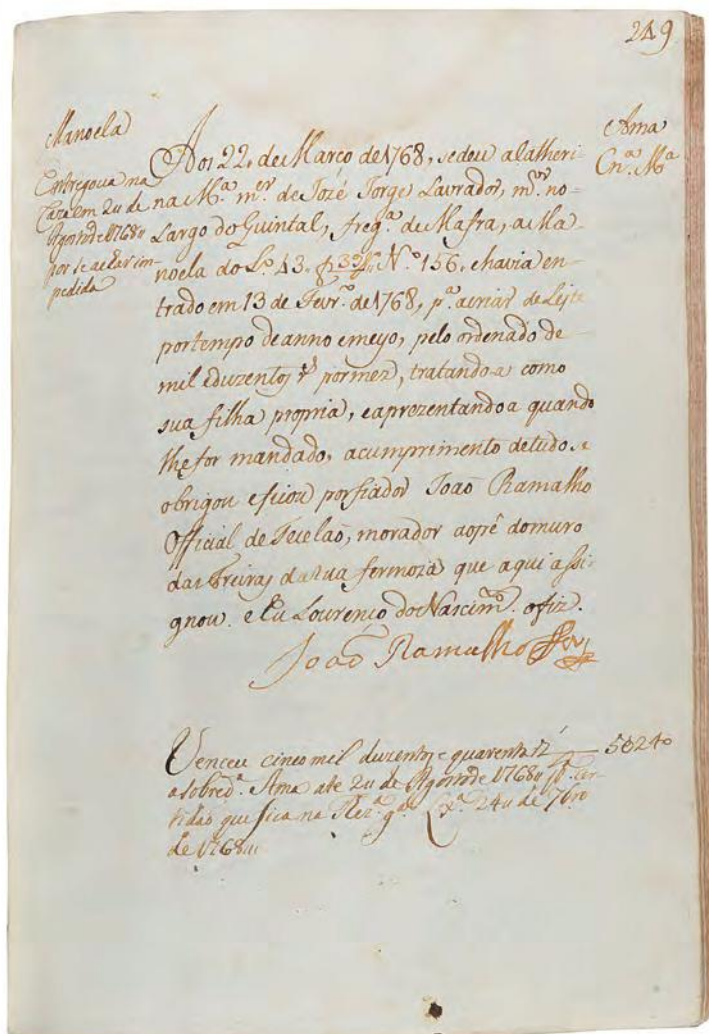 249
Manoela
Entregou a na
Caza em 2 u de
Agosto de 1768 u
por se achar im-
pedida
Ama
Cn.ª M.ª
Aos 22, de Março de 1768, se deu a Catheri-
na M.ª m.er de Jozé Jorge Lavrador, m.or no
Largo do Guintal, freg.ª de Mafra, a Ma-
noela do L.º 43. f 32 N.º 156, e havia en-
trado em 13 de Fevr.º de 1768, p.ª acriar de Leyte
por tempo de anno e meyo, pelo ordenado de
mil e duzentos rs por mez, tratando a como
sua filha propria, e aprezentando a quando
lhe for mandado, a cumprimento de tudo se
obrigou e ficou por fiador Joaõ Ramalho
Official de Tecelaõ, morador ao pê do muro
das Freiras da rua fermoza que aqui assi-
gnou. e Eu Lourenço do Nascim.to o fiz.
Joaõ Ramalho
Venceu cinco mil duzentos e quarenta rs — 5 u 240
a sobred.ª Ama ate 2 u de Agosto de 1768 u p.r cer-
tidaõ que fica na Rez.ª g.al Lx.ª 24 u de 7bro
de 1768 u